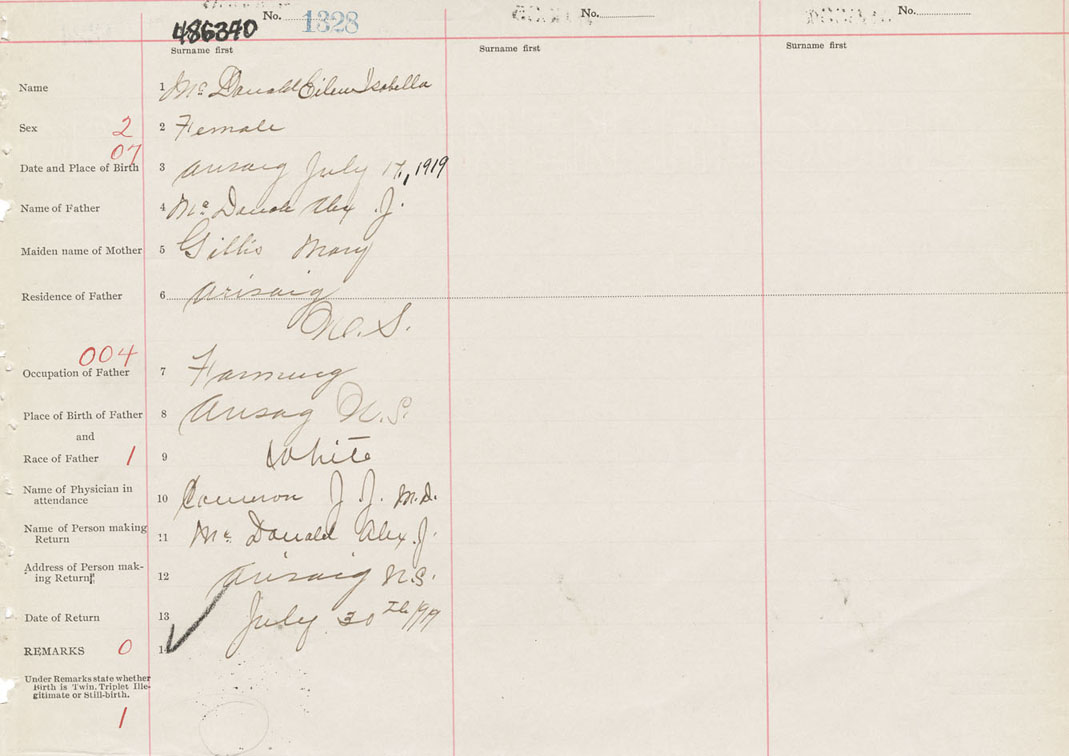 No. 1328 No. No.
486340
Surname first Surname first Surname first
Name 1 Mc Donald Eileen Isabella
Sex 2 2 Female
07
Date and Place of Birth 3 Arisaig July 17, 1919
Name of Father 4 Mc Donald Alex J.
Maiden name of Mother 5 Gillis Mary
Residence of Father 6 Arisaig
N.S.
004
Occupation of Father 7 Farming
Place of Birth of Father 8 Arisaig N.S.
and
Race of Father 1 9 White
Name of Physician in
attendance 10 Cameron J. J. M.D.
Name of Person making
Return 11 Mc Donald Alex J.
Address of Person mak-
ing Return 12 Arisaig N.S.
Date of Return 13 July 30th 1919
REMARKS 0 14
Under Remarks state whether
Birth is Twin, Triplet Ille-
gitimate or Still-birth.
1